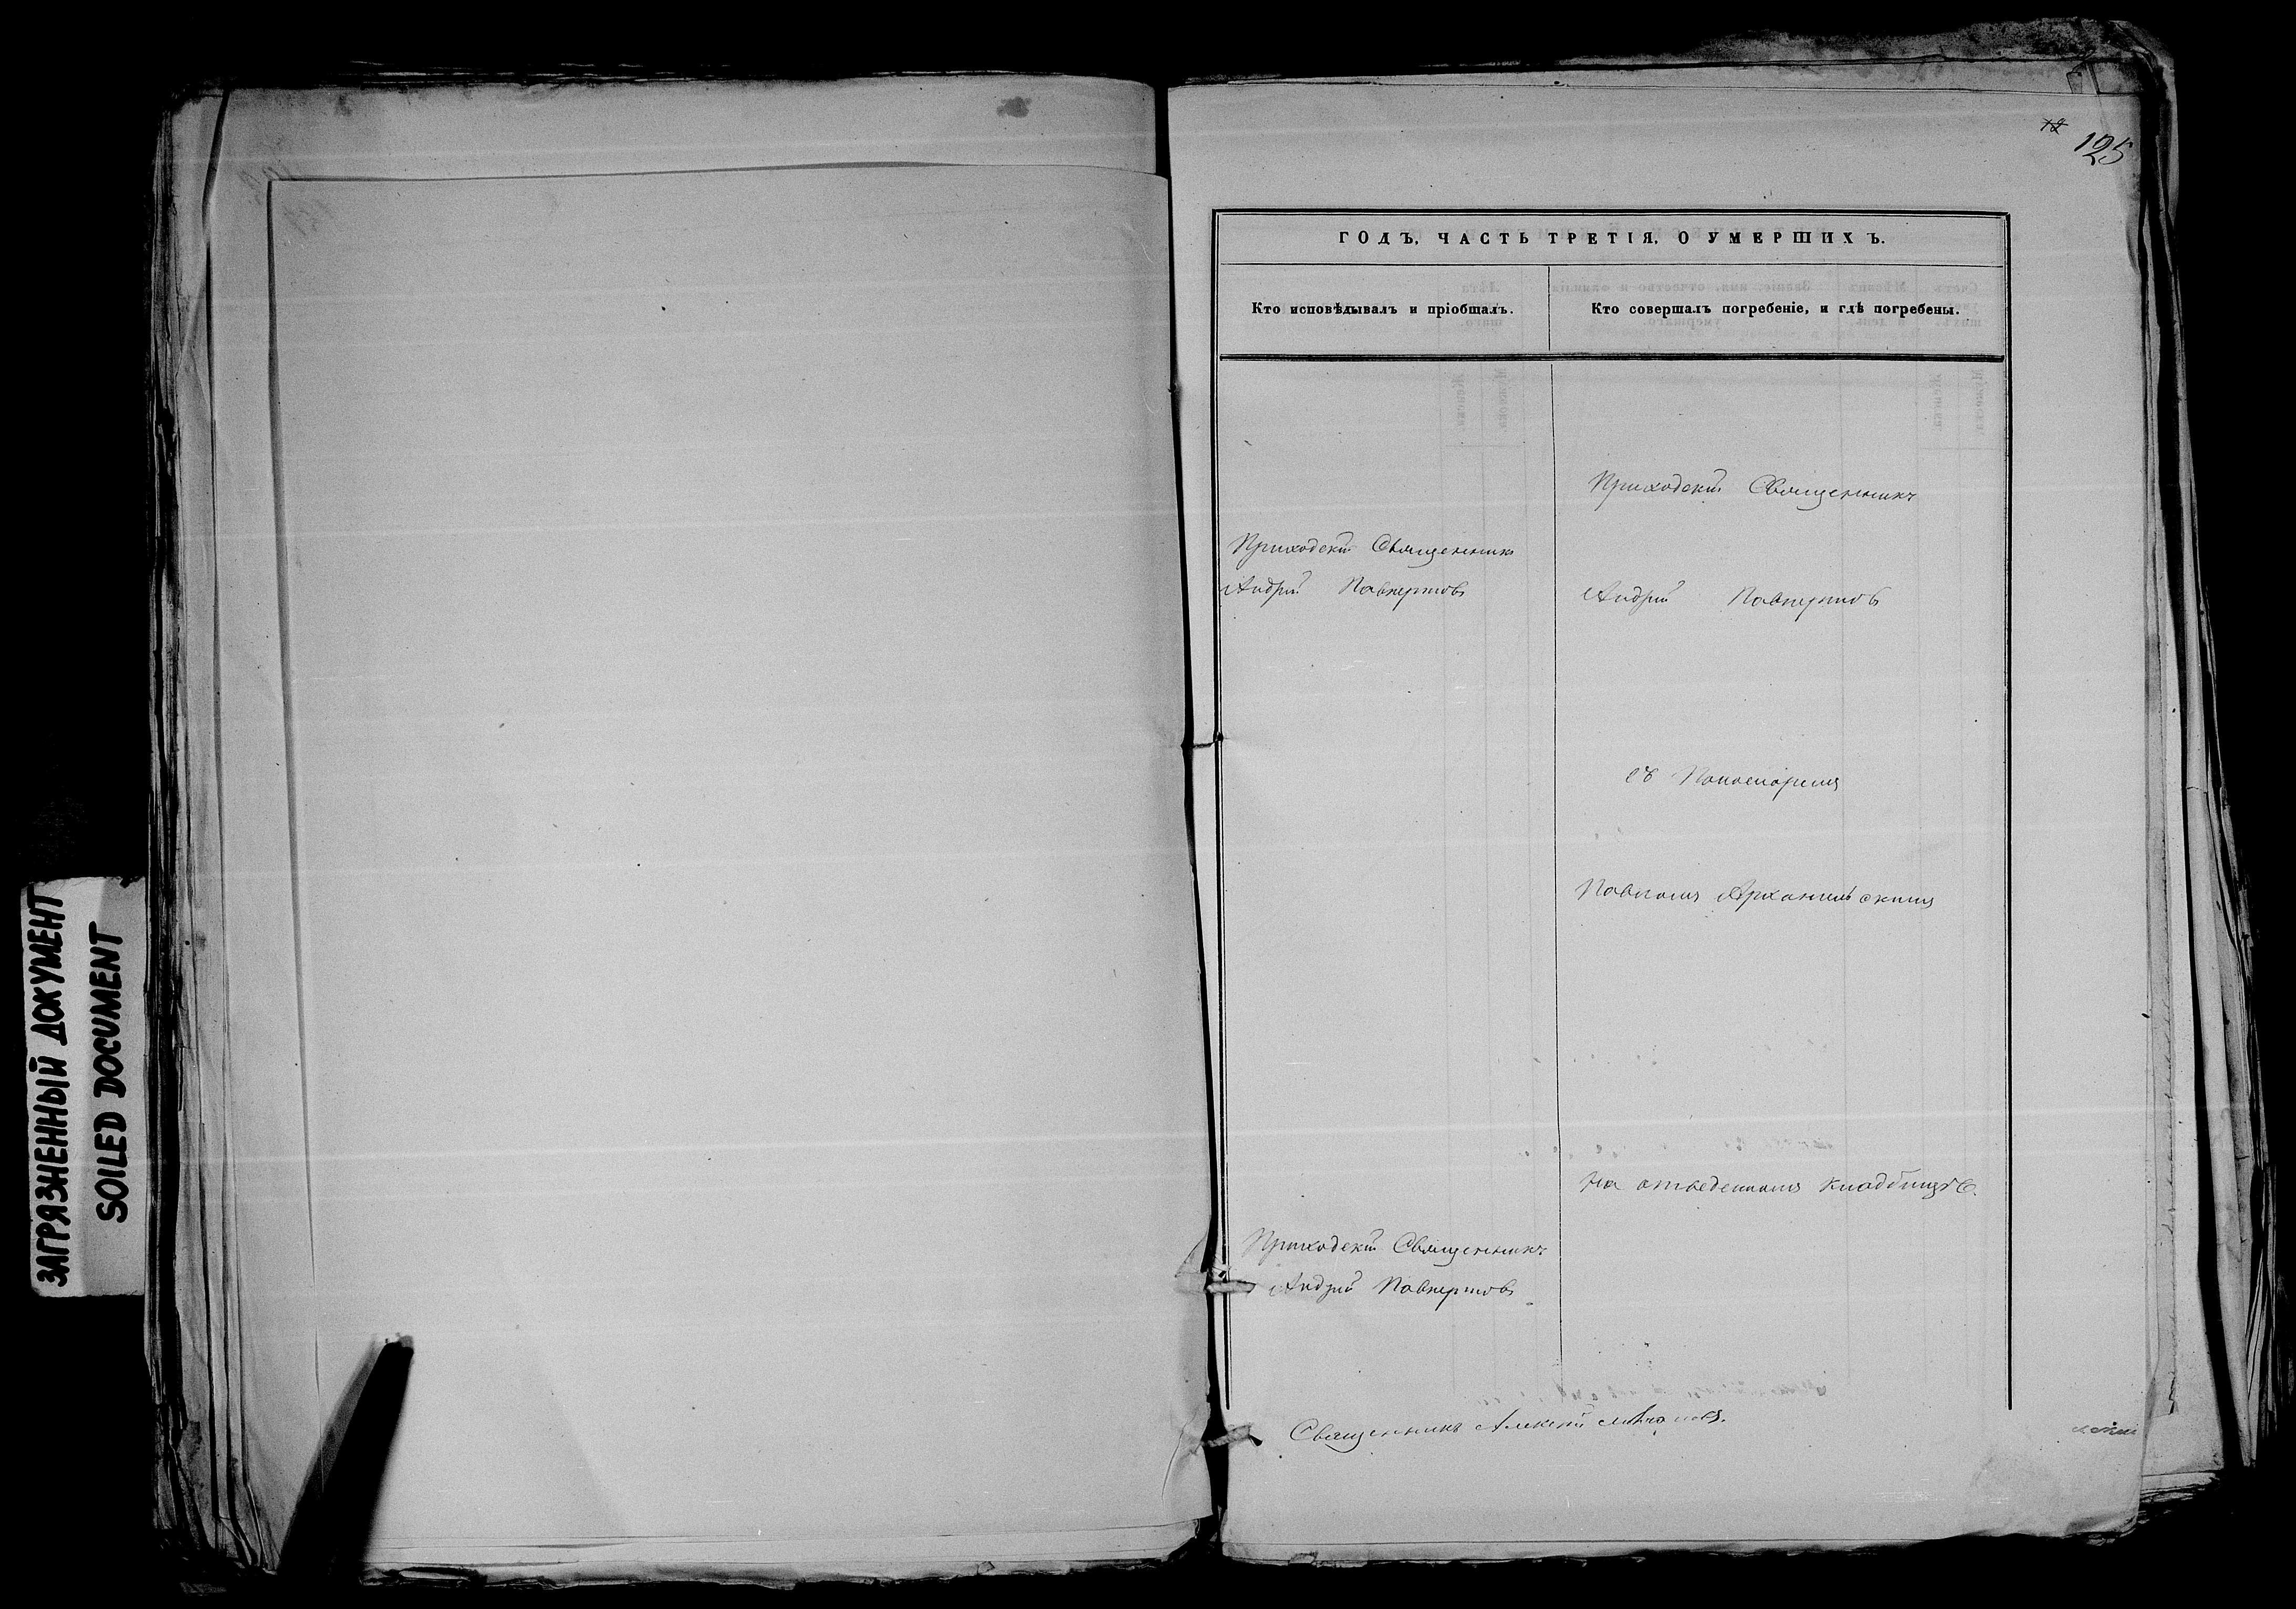 ЗАГРЯЗНЕННЫЙ ДОКУМЕНТ
SOILED DOCUMENT
12
125
ГОДЪ, ЧАСТЬ ТРЕТІЯ, О УМЕРШИХЪ.
Кто исповѣдывалъ и пріобщалъ.
Кто совершалъ погребеніе, и гдѣ погребены.
Приходскій Священникъ
Андрій
Приходскій Священникъ
Андрій
съ Пономаремъ
Павломъ Архангельскимъ
на отведенномъ кладбищѣ.
Приходскій Священникъ
Андрій
Священникъ Алексій